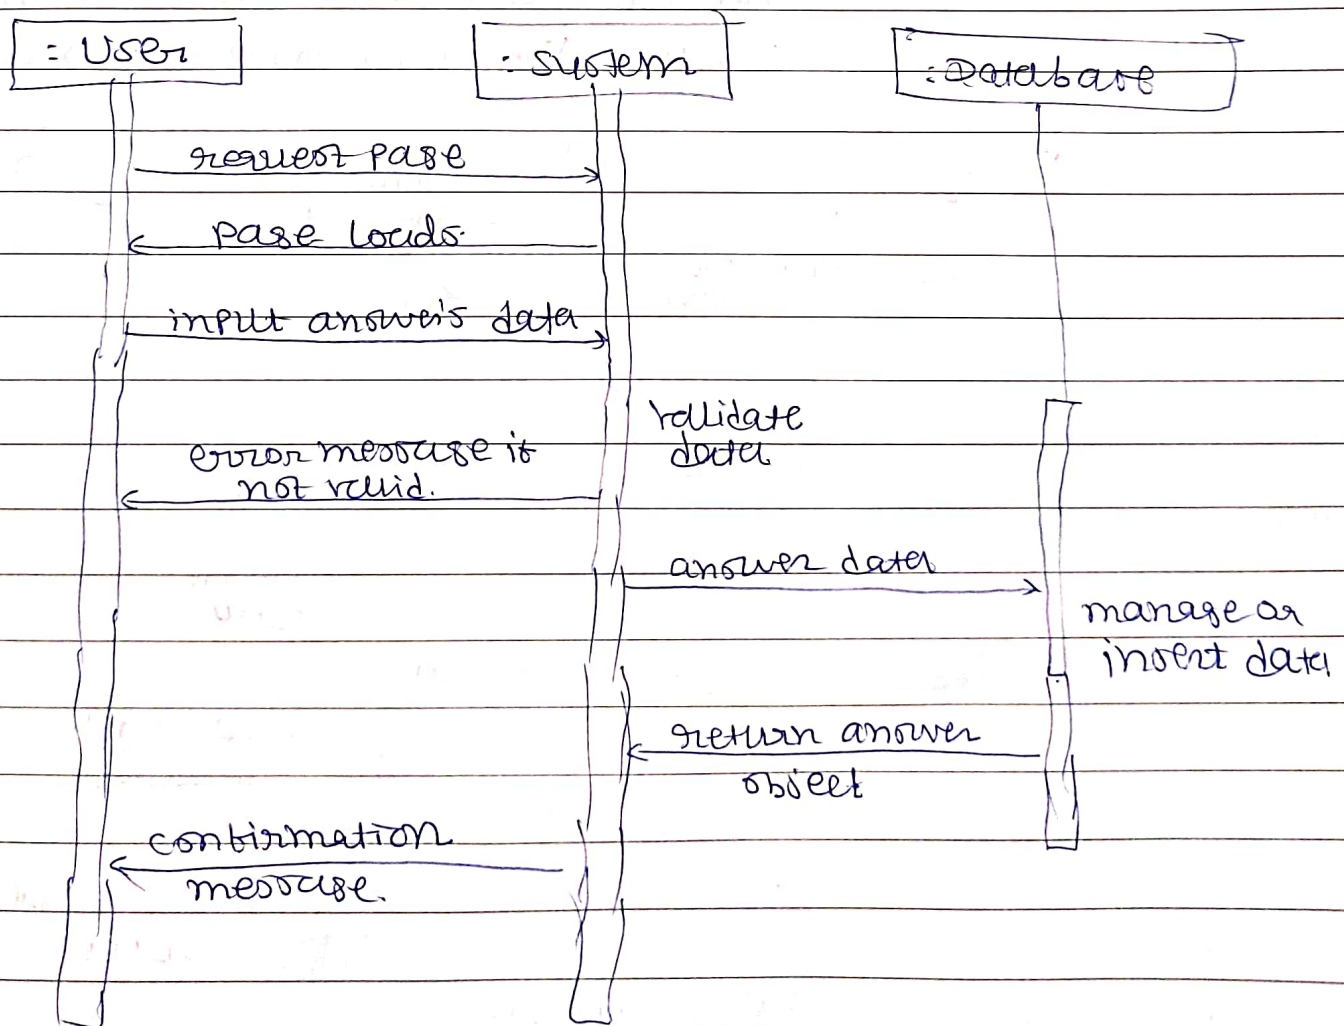 : User
: System
: Database
request page
page loads.
input answer's data
validate
data
error message if
not valid.
answer data
manage or
insert data
return answer
object
confirmation
message.